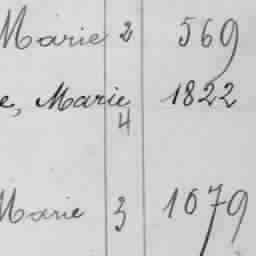 Marie 2 569
e, Marie 4 1822
Marie 3 1079